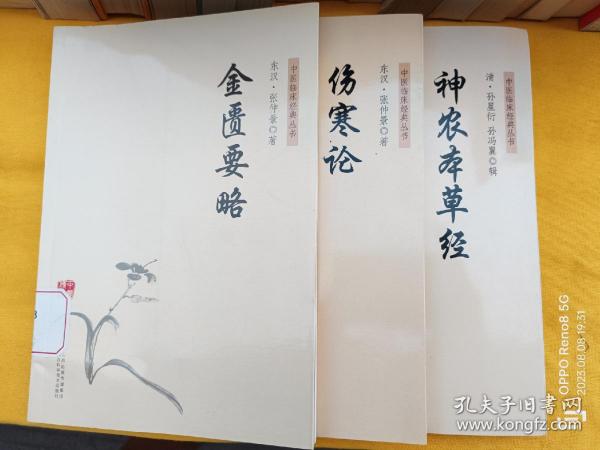 金匮要略
东汉·张仲景◎著
中医临床经典丛书
伤寒论
东汉·张仲景◎著
中医临床经典丛书
神农本草经
清·孙星衍 孙冯翼◎辑
中医临床经典丛书
OPPO Reno8 5G
2023.08.08 19:31
孔夫子旧书网
www.kongfz.com